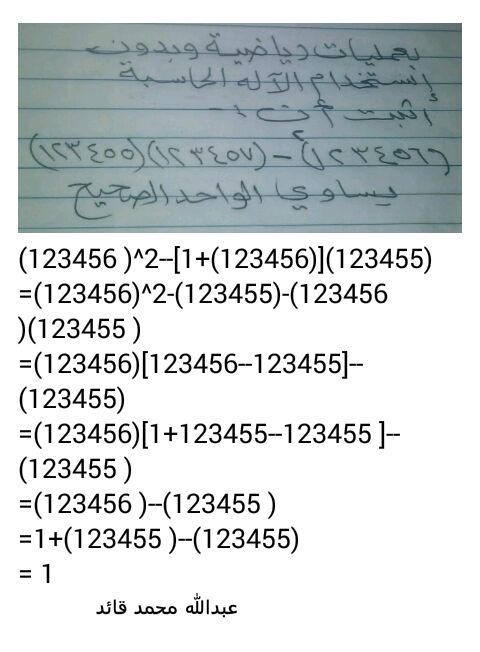 بعمليات رياضية وبدون
إستخدام الآلة الحاسبة
أثبت أن :-
(١٢٣٤٥٦)² - (١٢٣٤٥٧)(١٢٣٤٥٥)
يساوي الواحد الصحيح
(123456 )^2--[1+(123456)](123455)
=(123456)^2-(123455)-(123456
)(123455 )
=(123456)[123456--123455]--
(123455)
=(123456)[1+123455--123455 ]--
(123455 )
=(123456 )--(123455 )
=1+(123455 )--(123455)
= 1
عبدالله محمد قائد